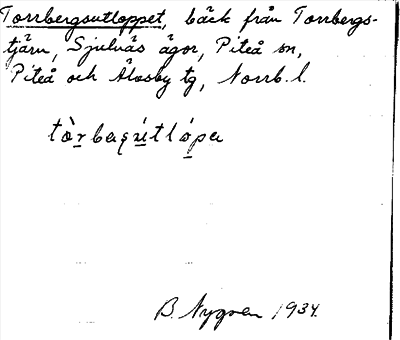 Torrbergsutloppet, bäck från Torrbergs-
tjärn, Sjulnäs ägor, Piteå sn,
Piteå och Älvsby tg, Norrb. l.
tò̱rbaşú̱tló̱pa
B. Nygren 1934.